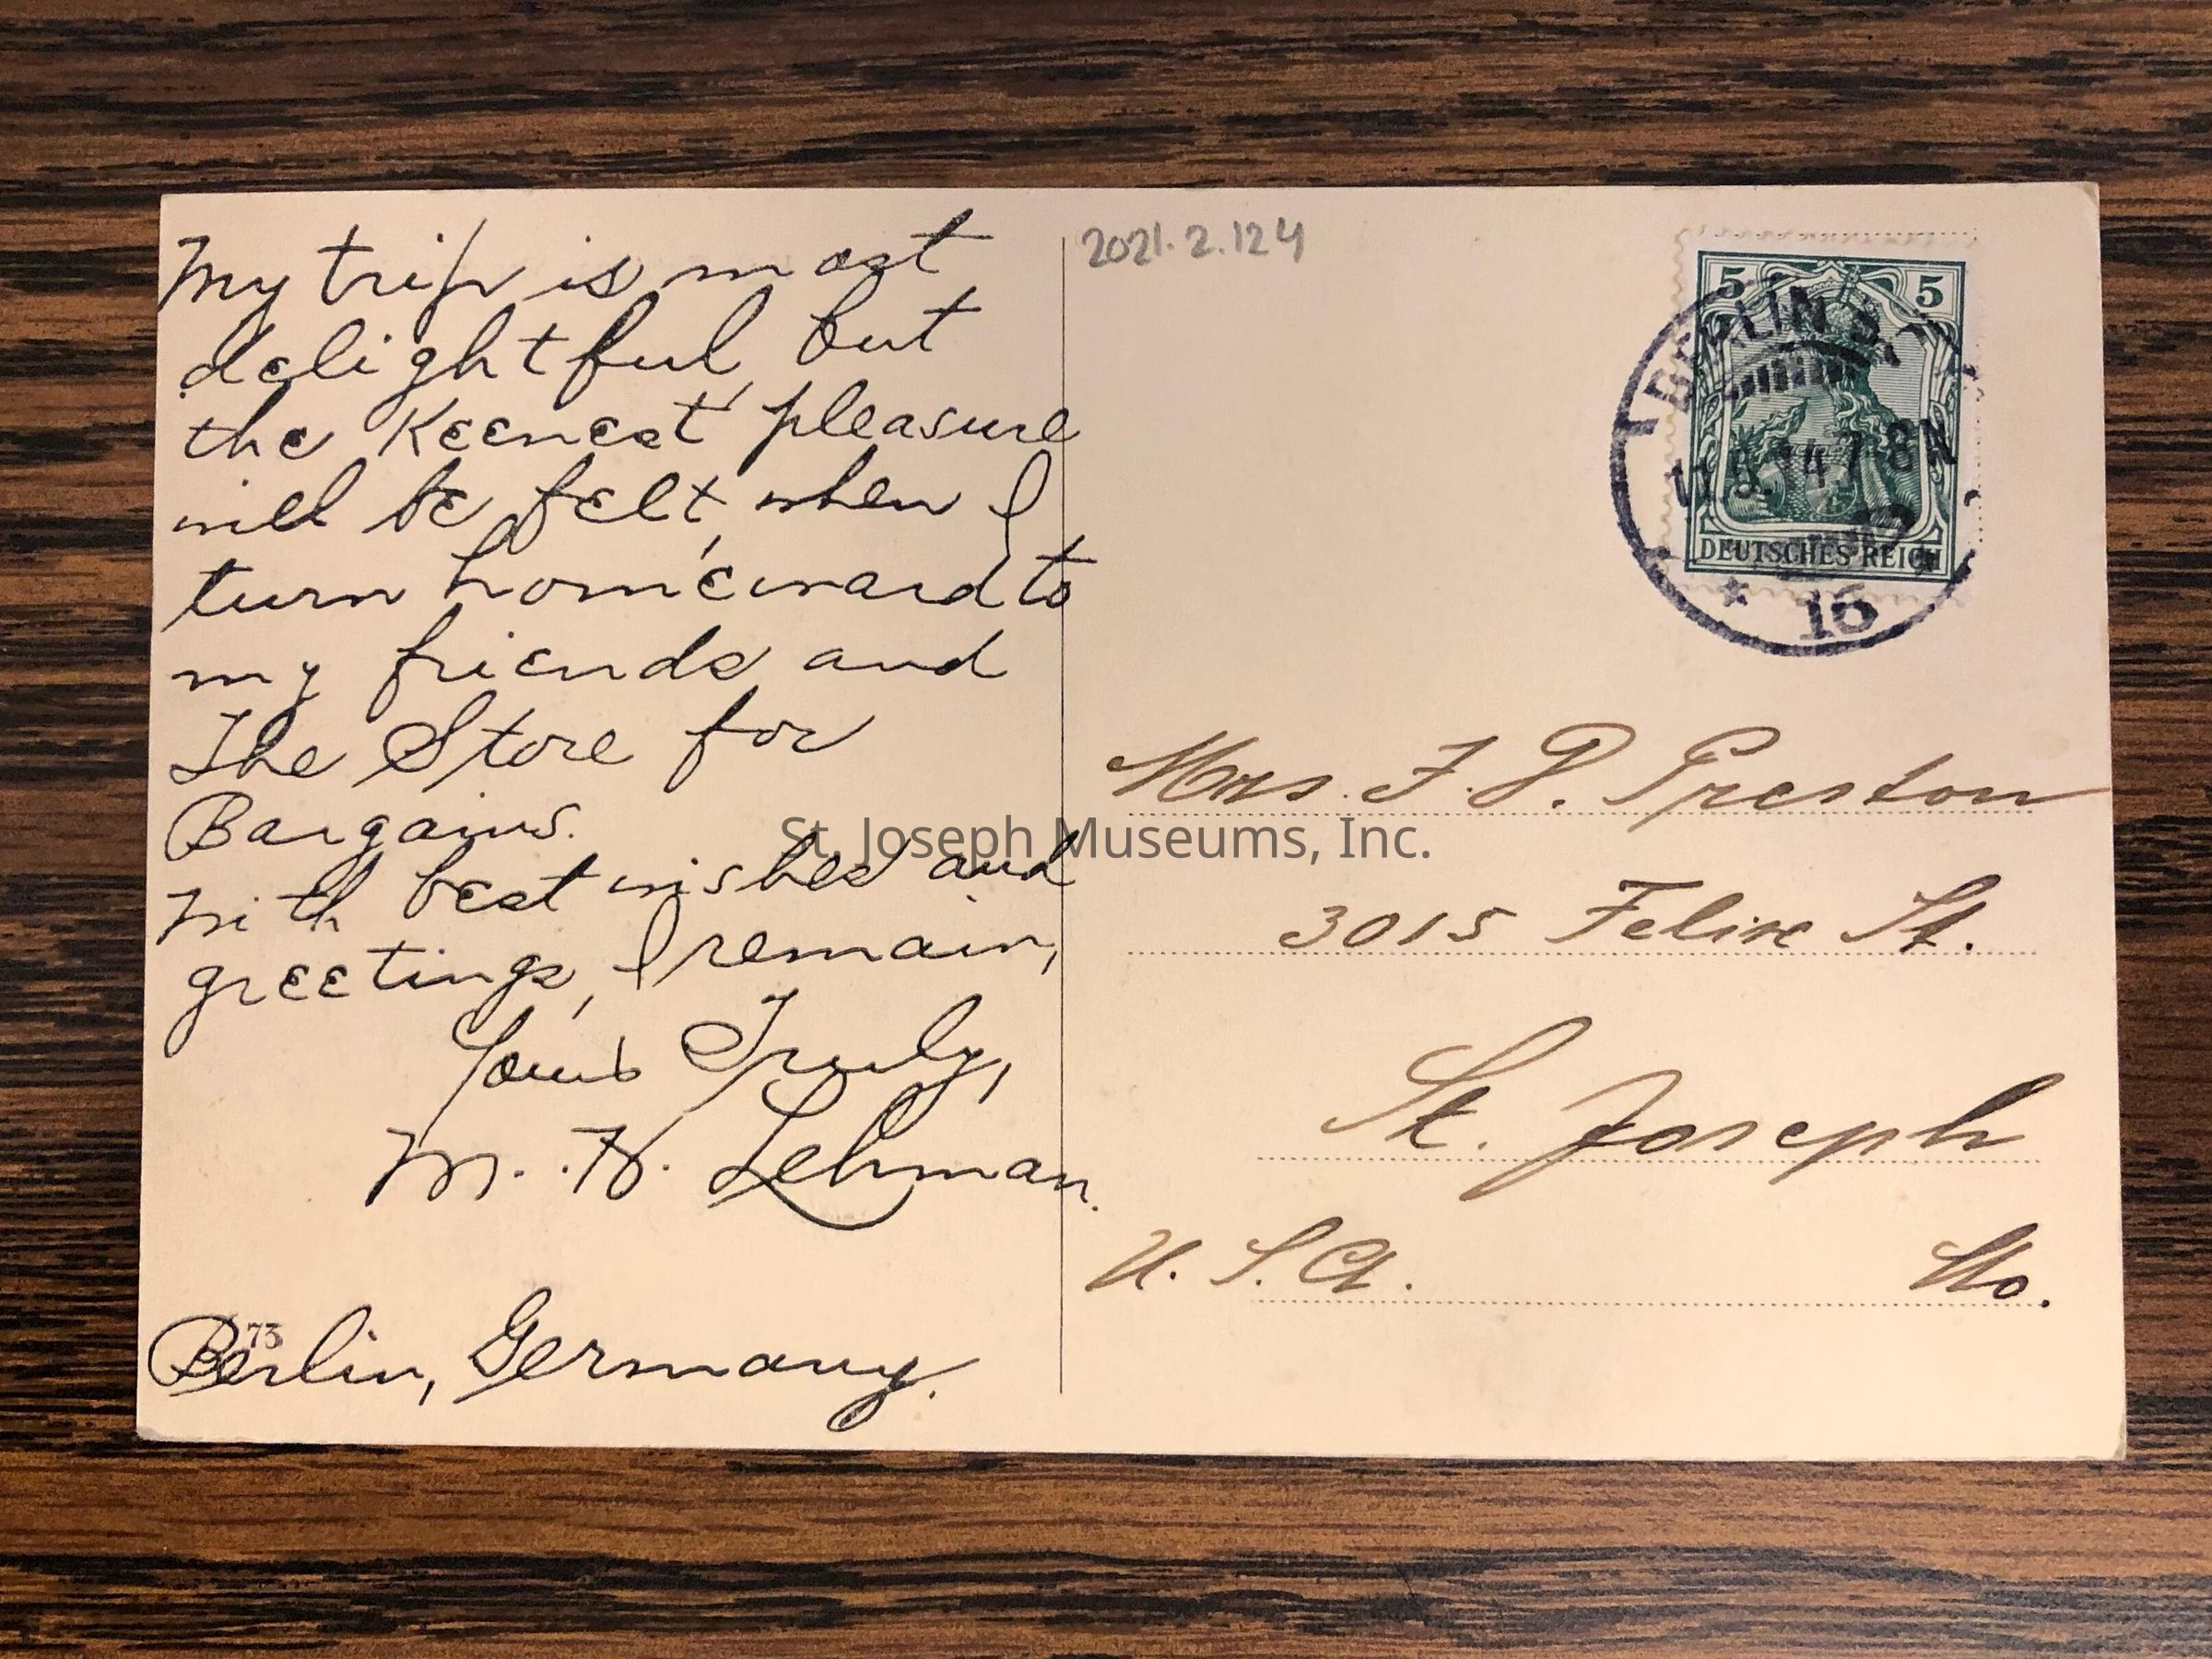 My trip is most
delightful but
the Keenest pleasure
will be felt, when I
turn homeward to
my friends and
The Store for
Bargains.
With best wishes and
greetings, I remain,
Yours Truly,
M. H. Lehman.
73
Berlin, Germany.
2021.2.124
5 5
BERLIN
14 7-8N
DEUTSCHES REICH
* 16
Mrs. F. P. Preston
3015 Felix St.
St. Joseph
U. S. A. Mo.
St. Joseph Museums, Inc.